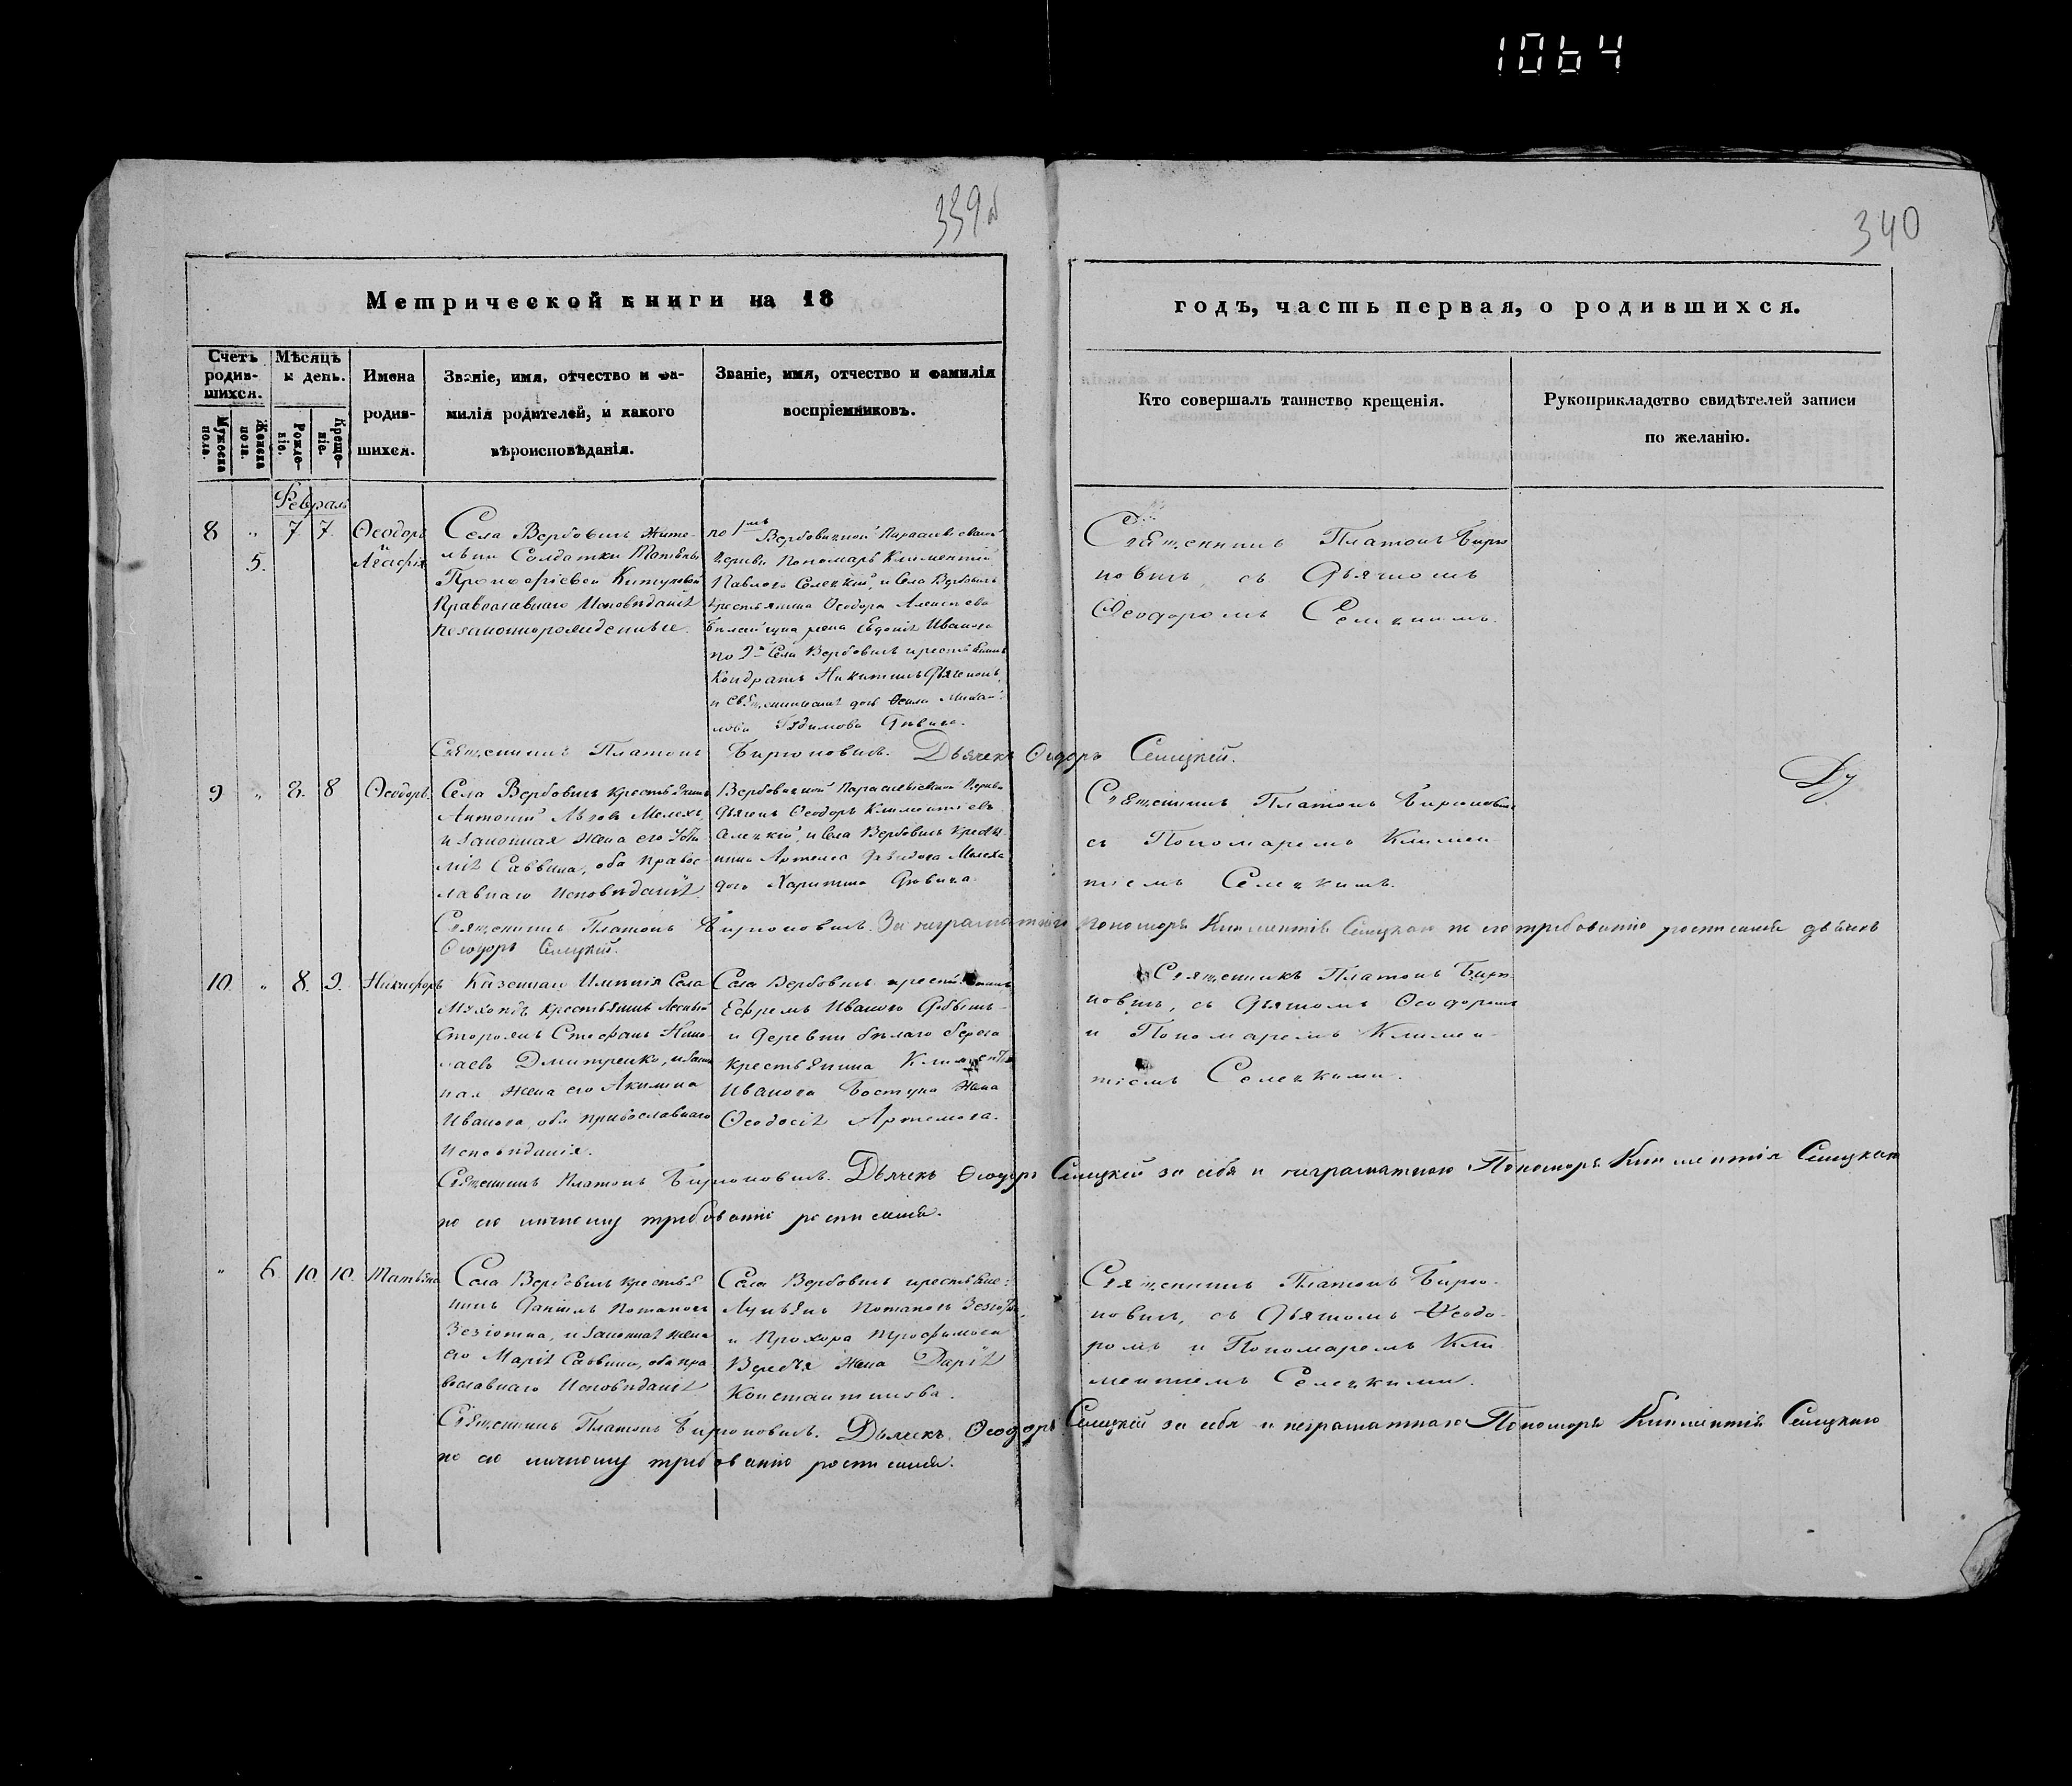 1064
339об
340
Метрической книги на 18
годъ, часть первая, о родившихся.
Счетъ родив-
шихся.
Мѣсяцъ
и день.
Имена
родив-
шихся.
Званіе, имя, отчество и фа-
милія родителей, и какого
вѣроисповѣданія.
Званіе, имя, отчество и фамилія
воспріемниковъ.
Кто совершалъ таинство крещенія.
Рукоприкладство свидѣтелей записи
по желанію.
Мужеска
пола.
Женска
пола.
Рожде-
ніе.
Креще-
ніе.
Февраль
8 " 7 7 Ѳеодоръ
5. и Агафія
Села Вербовичъ жите-
льки Солдатки Татіяны
Православнаго Исповѣданія
незаконнорожденные.
по 1мъ Вербовичской
церкви Пономарь Климентій
Павловъ Селецкій, и Села Вербовичъ
крестьянина Ѳеодора Алексѣева
жена Евдокія Иванова
по 2й Села Вербовичъ крестьянинъ
Кондратъ Никитинъ
дѣвица.
Священникъ Платонъ Бирюковичъ
съ Дьячкомъ
Ѳеодоромъ Селецкимъ.
Священникъ Платонъ Бирюковичъ. Дьячекъ Ѳеодоръ Селецкій.
9 " 8. 8 Ѳеодоръ
Села Вербовичъ крестьянинъ
Антоній Мелехъ,
и законная жена его
Саввина, оба правос-
лавнаго Исповѣданія.
Вербовичской Параскевіевской Церкви
Дьячекъ Ѳеодоръ Климентіевъ
Селецкій, и Села Вербовичъ крестья-
нина Артема Давидова Мелеха
дочь Харитина дѣвица.
Священникъ Платонъ Бирюковичъ
съ Пономаремъ Климен-
тіемъ Селецкимъ.
Священникъ Платонъ Бирюковичъ. За неграматнаго пономаря Климентія Селецкаго по его требованію росписался дьячекъ
Ѳеодоръ Селецкій.
10. " 8. 9. Никифоръ
Казеннаго Имѣнія Села
крестьянинъ Лесный
Сторожъ Стефанъ Нико-
лаевъ Дмитренко, и закон-
ная жена его Акилина
Иванова, оба православнаго
Исповѣданія.
Села Вербовичъ крестьянинъ
Ефремъ Ивановъ
и деревни бѣлаго берега
крестьянина Климентія
Иванова жена
Ѳеодосія Артемова.
Священникъ Платонъ Бирю-
ковичъ, съ Дьячкомъ Ѳеодоромъ
и Пономаремъ Климен-
тіемъ Селецкими.
Священникъ Платонъ Бирюковичъ. Дьячекъ Ѳеодоръ Селецкій за себя и неграматнаго Пономаря Климентія Селецкаго
по его личному требованію росписался.
" 6. 10. 10. Татіяна
Села Вербовичъ крестья-
нинъ Даніилъ Потаповъ
и законная жена
его Марія Саввина, оба пра-
вославнаго Исповѣданія
Села Вербовичъ крестьяне:
Лукьянъ Потаповъ
и Прохора Трофимова
жена Дарія
Константинова.
Священникъ Платонъ Бирю-
ковичъ, съ Дьячкомъ Ѳеодо-
ромъ и Пономаремъ Кли-
ментіемъ Селецкими.
Священникъ Платонъ Бирюковичъ. Дьячекъ Ѳеодоръ Селецкій за себя и неграматнаго Пономаря Климентія Селецкаго
по его личному требованію росписался.